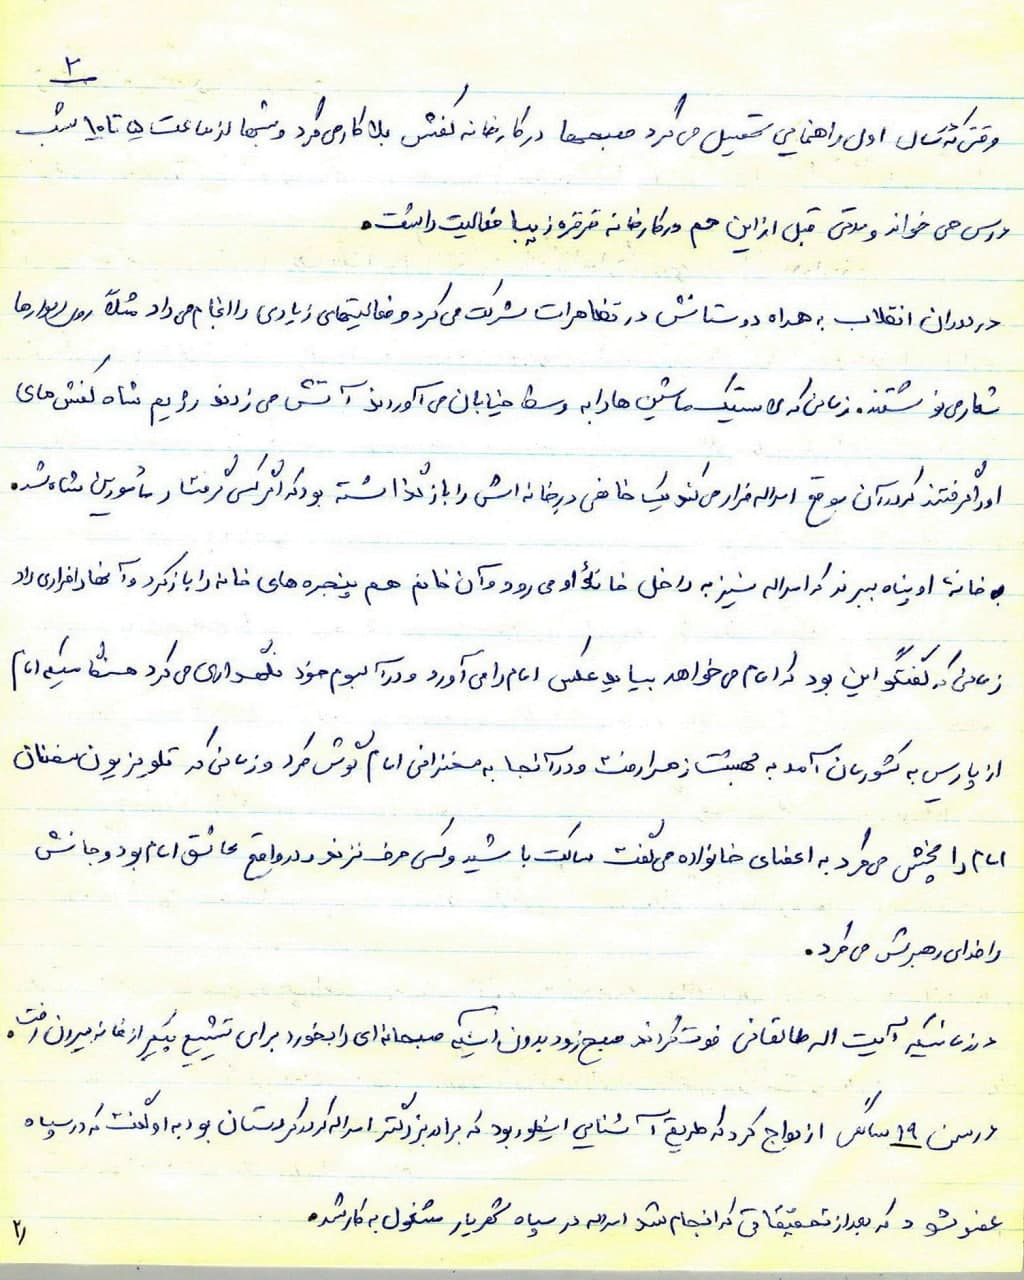 ۲
وقتی که سال اول راهنمایی تحصیل می کرد صبحها در کارخانه کفش بلا کار می کرد و شبها از ساعت ۵ تا ۱۰ شب
درس می خواند و مدتی قبل از این هم در کارخانه قرقره زیبا فعالیت داشت.
در دوران انقلاب به همراه دوستانش در تظاهرات شرکت می کرد و فعالیتهای زیادی را انجام می داد مثلاً روی دیوارها
شعار می نوشتند. زمانی که لاستیک ماشین ها را به وسط خیابان می آوردند آتش می زدند رژیم شاه کفش های
او را گرفتند که در آن موقع اسداله فرار می کند یک خانمی درِ خانه اش را باز گذاشته بود که اگر کسی گرفتار مأمورین شاه شد.
به خانه او پناه ببرند که اسداله نیز به داخل خانهٔ او می رود و آن خانم هم پنجره های خانه را باز کرد و آنها را فراری داد
زمانی که گفتگو این بود که امام می خواهد بیاید عکس امام را می آورد و در آلبوم خود نگهداری می کرد هنگامیکه امام
از پاریس به کشورمان آمد به بهشت زهرا رفت و در آنجا به سخنرانی امام گوش کرد و زمانی که تلویزیون سخنان
امام را پخش می کرد به اعضای خانواده می گفت ساکت باشید و کسی حرف نزند در واقع عاشق امام بود و جانش
را فدای رهبرش می کرد.
در زمانیکه آیت اله طالقانی فوت کردند صبح زود بدون اینکه صبحانه ای را بخورد برای تشییع پیکر از خانه بیرون رفت.
در سن ۱۹ سالگی ازدواج کرد که طریقه آشنایی اینطور بود که برادر بزرگتر اسداله که در کردستان بود به او گفت که در سپاه
عضو شود که بعد از تحقیقاتی که انجام شد اسداله در سپاه شهریار مشغول به کار شد.
۲/